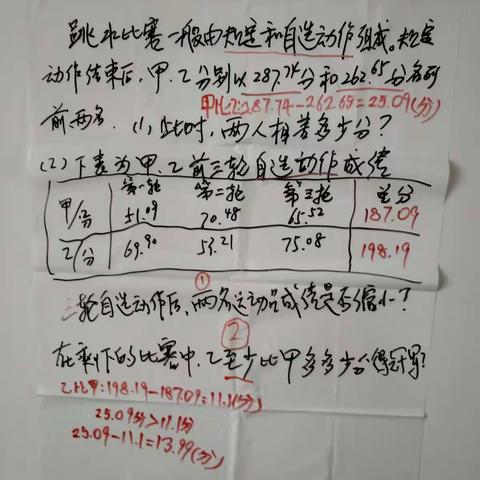 跳水比赛一般由规定和自选动作组成。规定
动作结束后，甲、乙分别以287.74分和262.65分名列
甲比乙:287.74-262.65=25.09(分)
前两名. (1)此时，两人相差多少分？
(2)下表为甲、乙前三轮自选动作成绩
第一轮 第二轮 第三轮 总分
甲/分 51.09 70.48 65.52 187.09
乙/分 69.90 53.21 75.08 198.19
①
三轮自选动作后，两名运动员成绩是否缩小？
②
在剩下的比赛中，乙至少比甲多多少分得冠军？
乙比甲:198.19-187.09=11.1(分)
25.09分>11.1分
25.09-11.1=13.99(分)